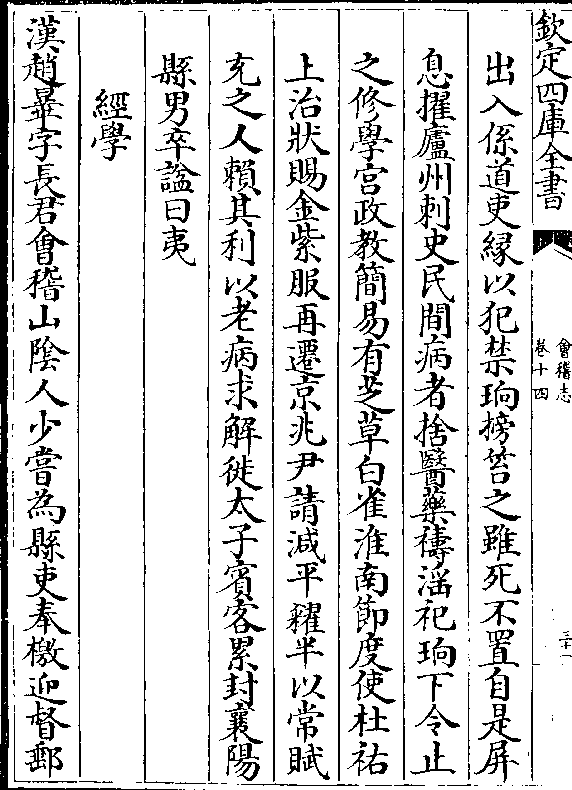 欽定四庫全書
會稽志
卷十四
三十一
出入係道吏縁以犯禁珦搒笞之雖死不置自是屏
息擢廬州刺史民間病者捨醫藥禱滛祀珦下令止
之修學宫政教簡易有芝草白雀淮南節度使杜祐
上治狀賜金紫服再遷京兆尹請減平糴半以常賦
充之人頼其利以老病求解徙太子賓客累封襄陽
縣男卒諡曰夷
經學
漢趙曅字長君會稽山陰人少嘗為縣吏奉檄迎督郵